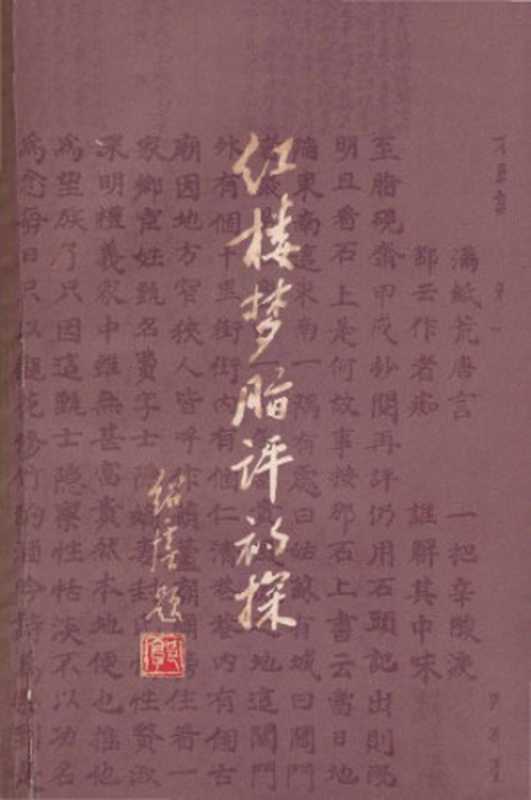 红楼梦脂评初探
绍虞题
滿紙荒唐言 一把辛酸淚
都云作者痴 誰解其中味
至脂硯齋甲戌抄閱再評仍用石頭記出則既
明且看石上是何故事按那石上書云當日地
陷東南這東南一隅有處曰姑蘇有城曰閶門
地這閶門
外有個十里街街內有個仁清巷巷內有個古
廟因地方窄狹人皆呼作葫蘆廟廟旁住着一
家鄉宦姓甄名費字士隱嫡妻封氏性賢淑
深明禮義家中雖無甚富貴然本地便也推他
為望族了只因這甄士隱稟性恬淡不以功名
為念每日只以觀花修竹酌酒吟詩為